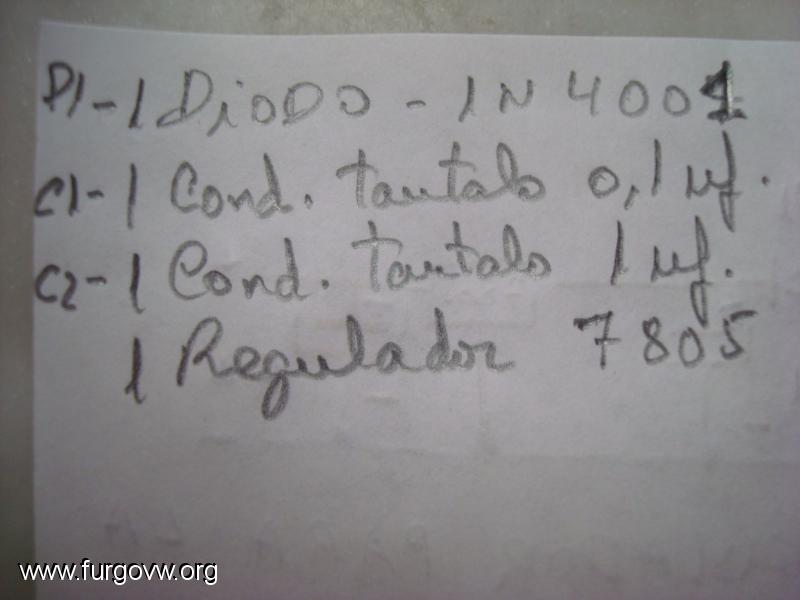 D1-1 DioDO - 1N 4001
C1-1 Cond. tantalo 0,1 uf.
C2-1 Cond. tantalo 1 uf.
1 Regulador 7805
www.furgovw.org